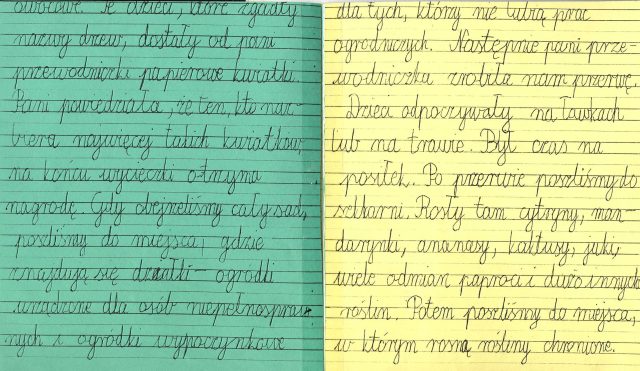 owocowe. Te dzieci, które zgadły
nazwy drzew, dostały od pani
przewodniczki papierowe kwiatki.
Pani powiedziała, że ten, kto naz-
biera najwięcej takich kwiatków,
na końcu wycieczki otrzyma
nagrodę. Gdy obejrzeliśmy cały sad,
poszliśmy do miejsca, gdzie
znajdują się działki – ogródki
urządzone dla osób niepełnospraw-
nych i ogródki wypoczynkowe
dla tych, którzy nie lubią prac
ogrodniczych. Następnie pani prze-
wodniczka zrobiła nam przerwę.
Dzieci odpoczywały na ławkach
lub na trawie. Był czas na
posiłek. Po przerwie poszliśmy do
szklarni. Rosły tam cytryny, man-
darynki, ananasy, kaktusy, juki,
wiele odmian paproci i dużo innych
roślin. Potem poszliśmy do miejsca,
w którym rosną rośliny chronione.